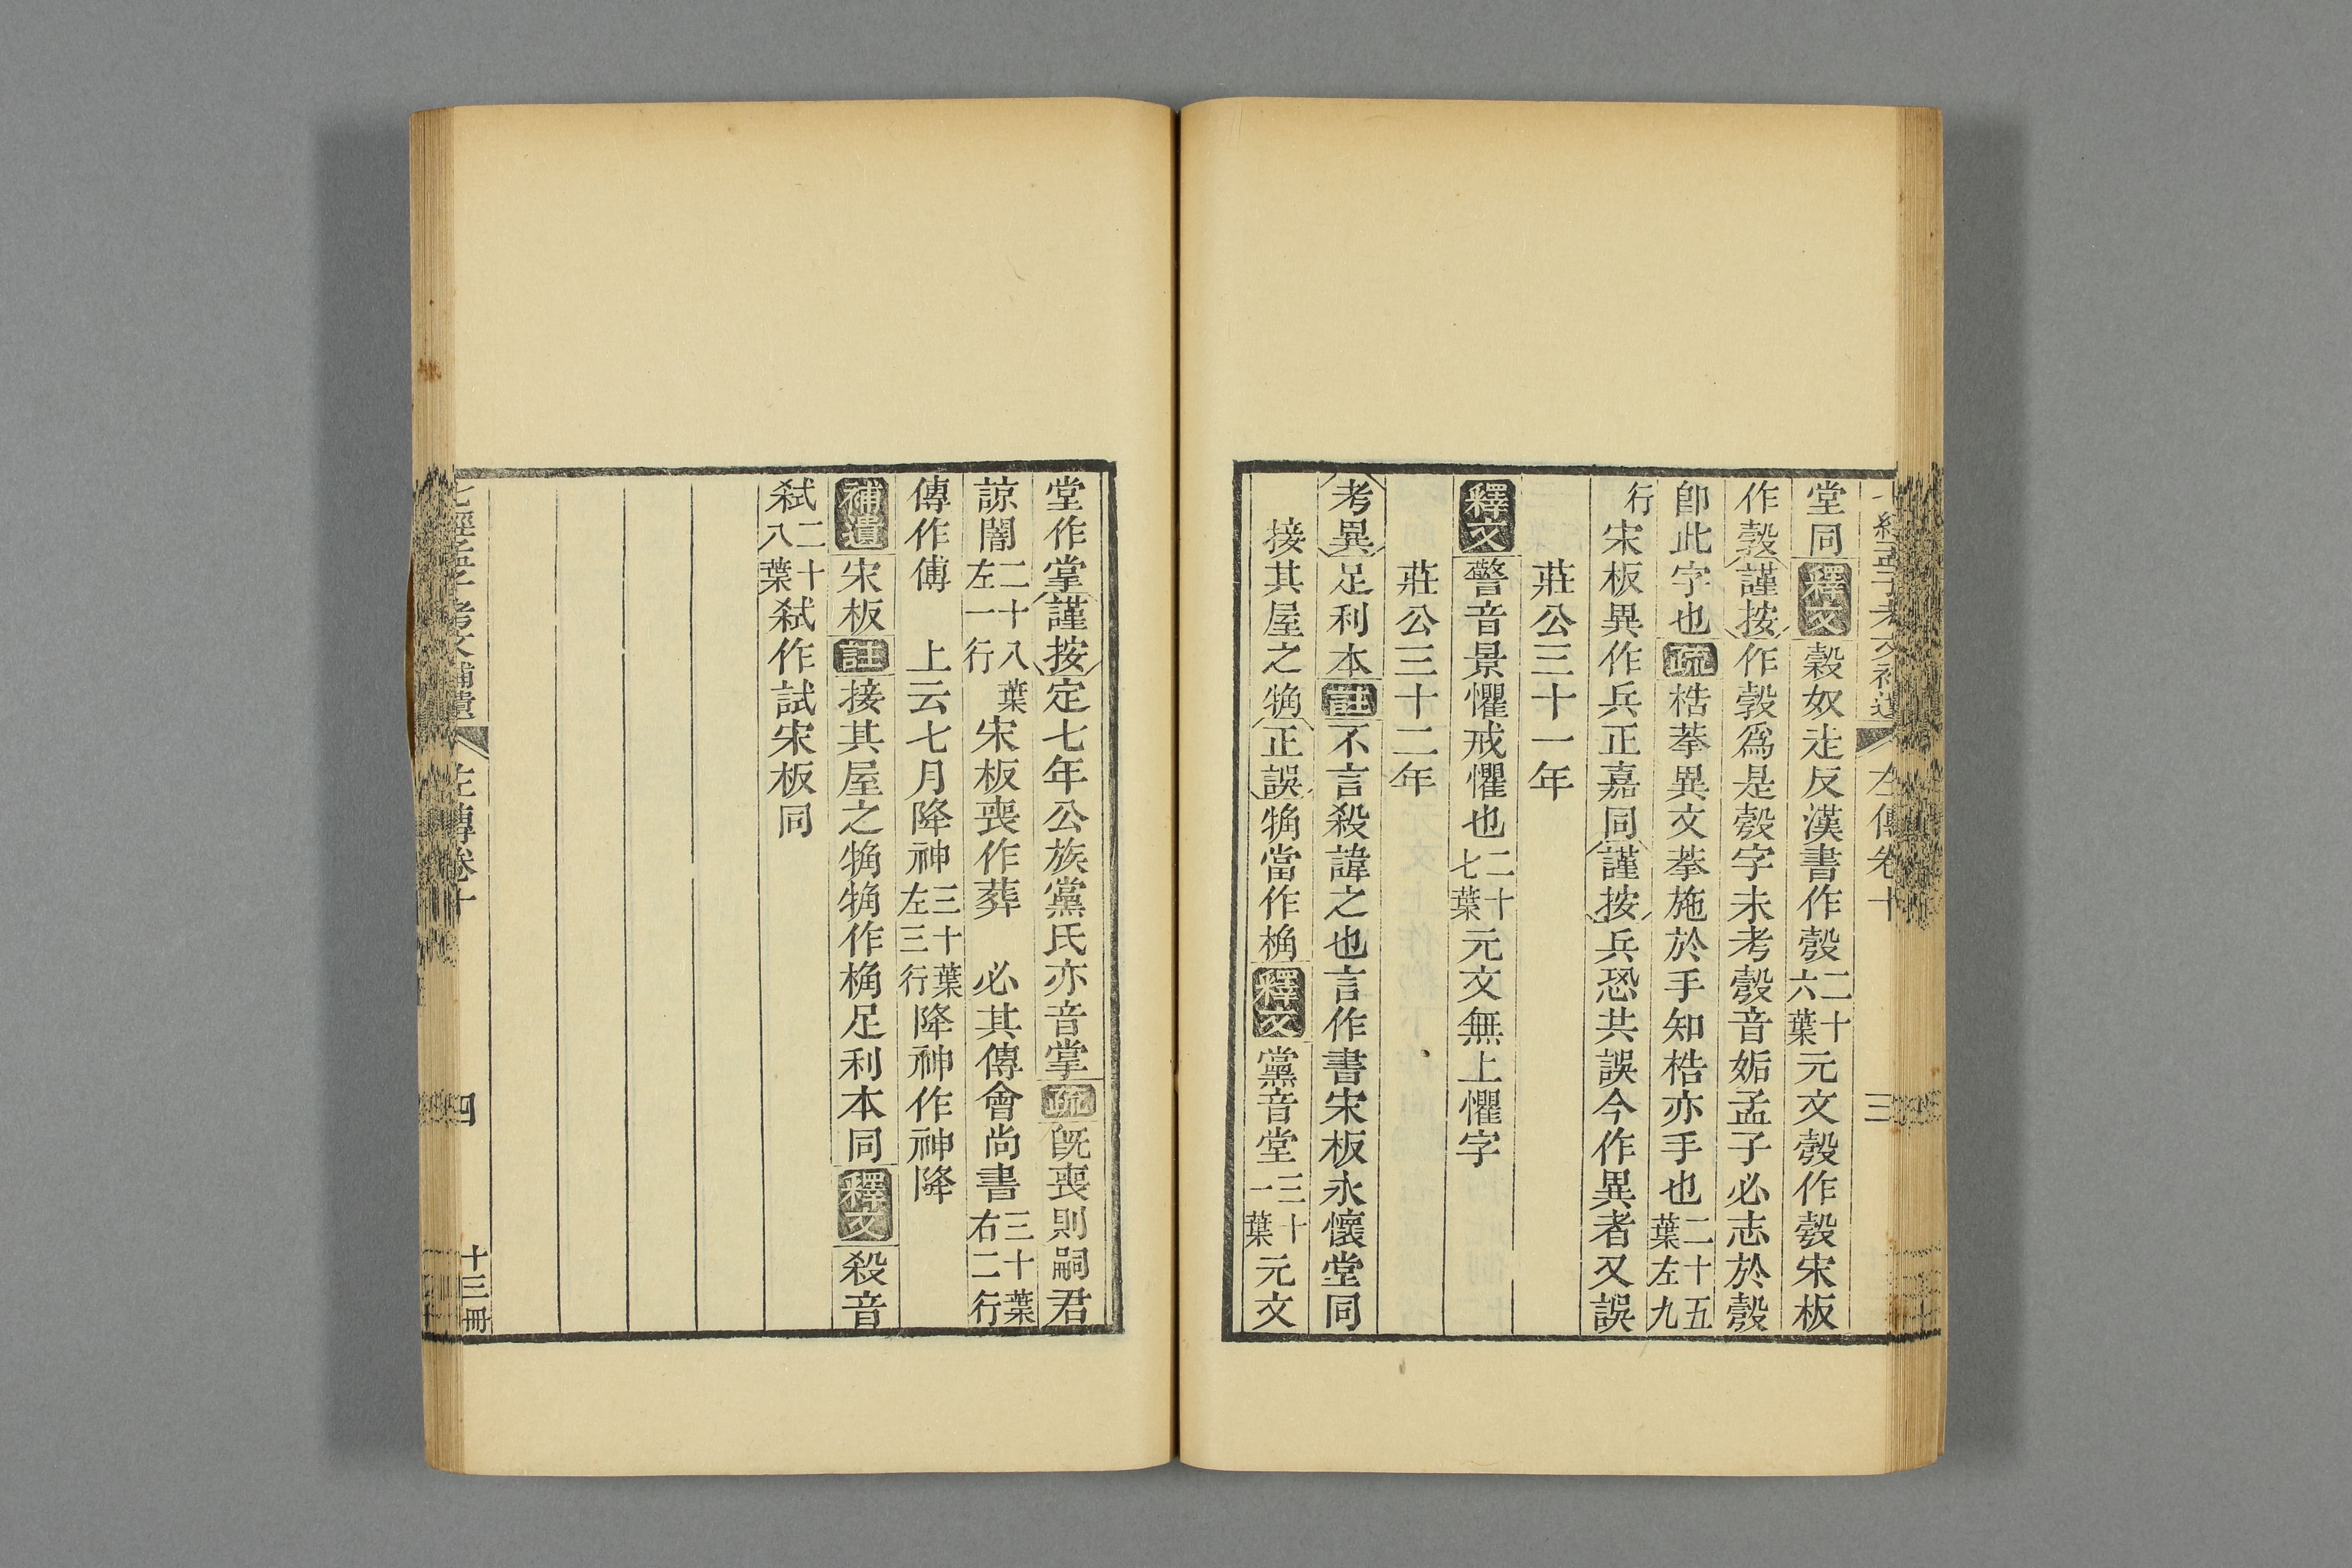 七經孟子考文補遺 左傳卷十 三
堂同釋文穀奴走反漢書作彀二十六葉元文彀作㝅宋板
作㝅謹按作㝅爲是彀字未考彀音姤孟子必志於彀
卽此字也疏梏拲異文拲施於手知梏亦手也二十五葉左九
行宋板異作兵正嘉同謹按兵恐共誤今作異者又誤
莊公三十一年
釋文警音景懼戒懼也二十七葉元文無上懼字
莊公三十二年
考異足利本註不言殺諱之也言作書宋板永懷堂同
接其屋之犄正誤犄當作桷釋文黨音堂三十一葉元文
堂作掌謹按定七年公族黨氏亦音掌疏旣喪則嗣君
諒闇二十八葉左一行宋板喪作葬 必其傳會尚書三十葉右二行
傳作傅 上云七月降神三十葉左三行降神作神降
補遺宋板註接其屋之犄犄作桷足利本同釋文殺音
弑二十八葉弑作試宋板同
七經孟子考文補遺 左傳卷十 四 十三冊